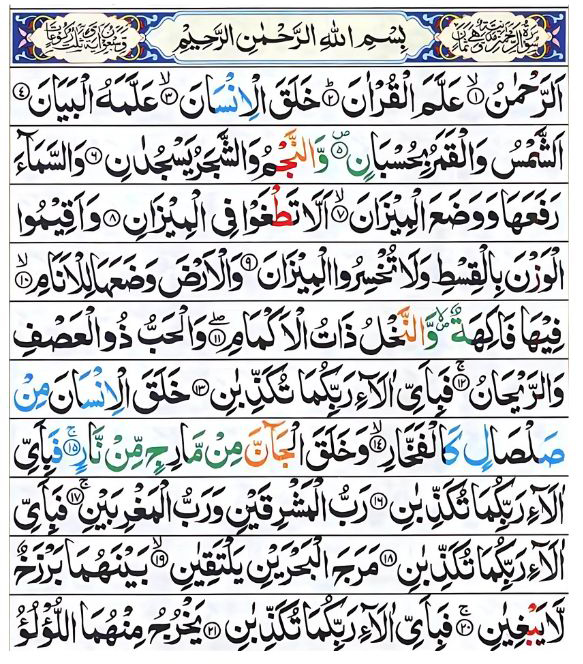 بِسْمِ اللهِ الرَّحْمٰنِ الرَّحِيْمِ
اَلرَّحْمٰنُ ۙ﴿۱﴾ عَلَّمَ الْقُرْاٰنَ ؕ﴿۲﴾ خَلَقَ الْاِنْسَانَ ۙ﴿۳﴾ عَلَّمَهُ الْبَيَانَ ﴿۴﴾
اَلشَّمْسُ وَالْقَمَرُ بِحُسْبَانٍ ۪﴿۵﴾ وَّالنَّجْمُ وَالشَّجَرُ يَسْجُدٰنِ ﴿۶﴾ وَالسَّمَآءَ
رَفَعَهَا وَوَضَعَ الْمِيْزَانَ ۙ﴿۷﴾ اَلَّا تَطْغَوْا فِى الْمِيْزَانِ ﴿۸﴾ وَاَقِيْمُوا
الْوَزْنَ بِالْقِسْطِ وَلَا تُخْسِرُوا الْمِيْزَانَ ﴿۹﴾ وَالْاَرْضَ وَضَعَهَا لِلْاَنَامِ ۙ﴿۱۰﴾
فِيْهَا فَاكِهَةٌ ۪ۙ وَّالنَّخْلُ ذَاتُ الْاَكْمَامِ ۖ﴿۱۱﴾ وَالْحَبُّ ذُو الْعَصْفِ
وَالرَّيْحَانُ ۚ﴿۱۲﴾ فَبِاَىِّ اٰلَآءِ رَبِّكُمَا تُكَذِّبٰنِ ﴿۱۳﴾ خَلَقَ الْاِنْسَانَ مِنْ
صَلْصَالٍ كَالْفَخَّارِ ۙ﴿۱۴﴾ وَخَلَقَ الْجَآنَّ مِنْ مَّارِجٍ مِّنْ نَّارٍ ۚ﴿۱۵﴾ فَبِاَىِّ
اٰلَآءِ رَبِّكُمَا تُكَذِّبٰنِ ﴿۱۶﴾ رَبُّ الْمَشْرِقَيْنِ وَرَبُّ الْمَغْرِبَيْنِ ۚ﴿۱۷﴾ فَبِاَىِّ
اٰلَآءِ رَبِّكُمَا تُكَذِّبٰنِ ﴿۱۸﴾ مَرَجَ الْبَحْرَيْنِ يَلْتَقِيٰنِ ۙ﴿۱۹﴾ بَيْنَهُمَا بَرْزَخٌ
لَّا يَبْغِيٰنِ ۚ﴿۲۰﴾ فَبِاَىِّ اٰلَآءِ رَبِّكُمَا تُكَذِّبٰنِ ﴿۲۱﴾ يَخْرُجُ مِنْهُمَا اللُّؤْلُؤُ